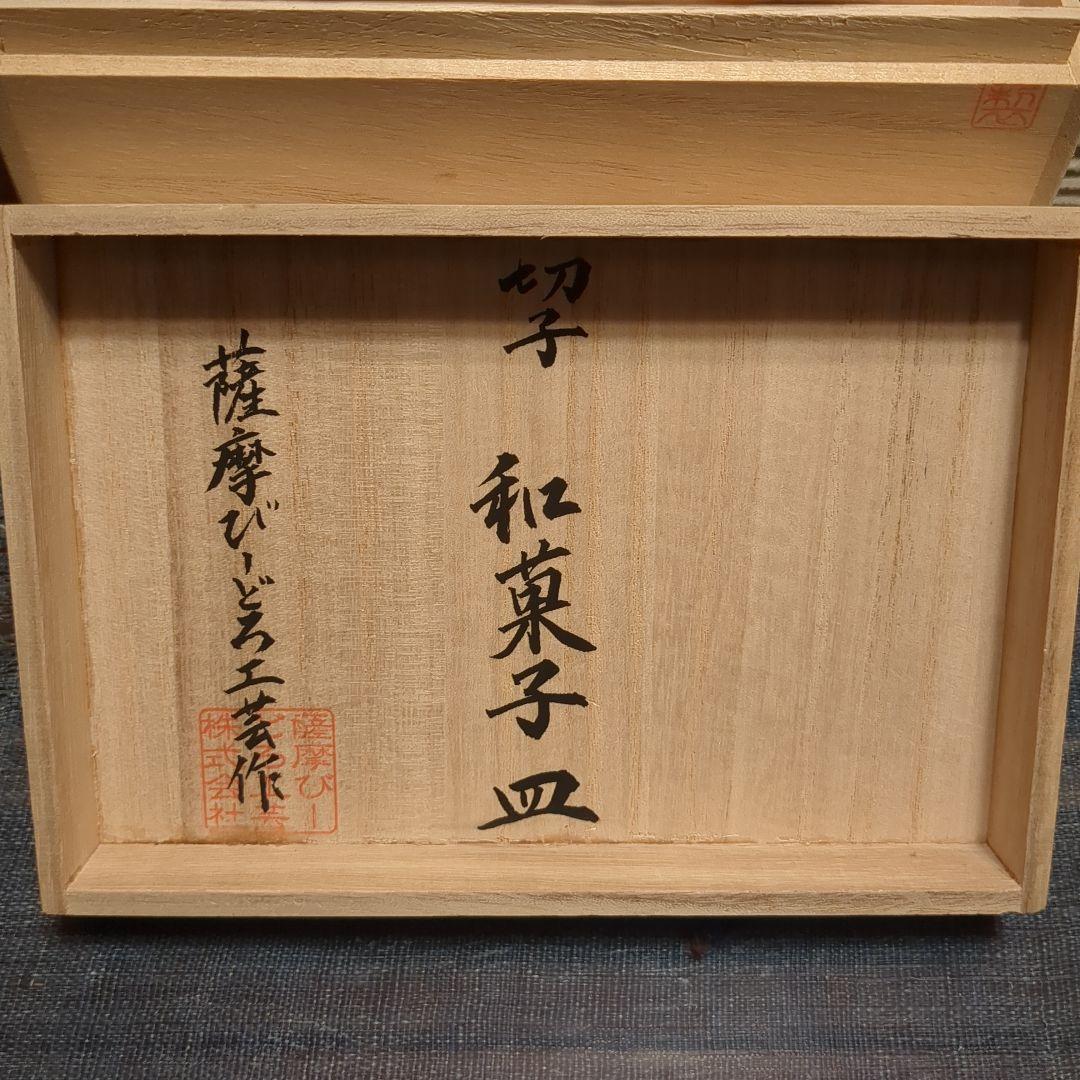 切子 和菓子皿
薩摩びーどろ工芸作
薩摩びー
どろ工芸
株式会社
製